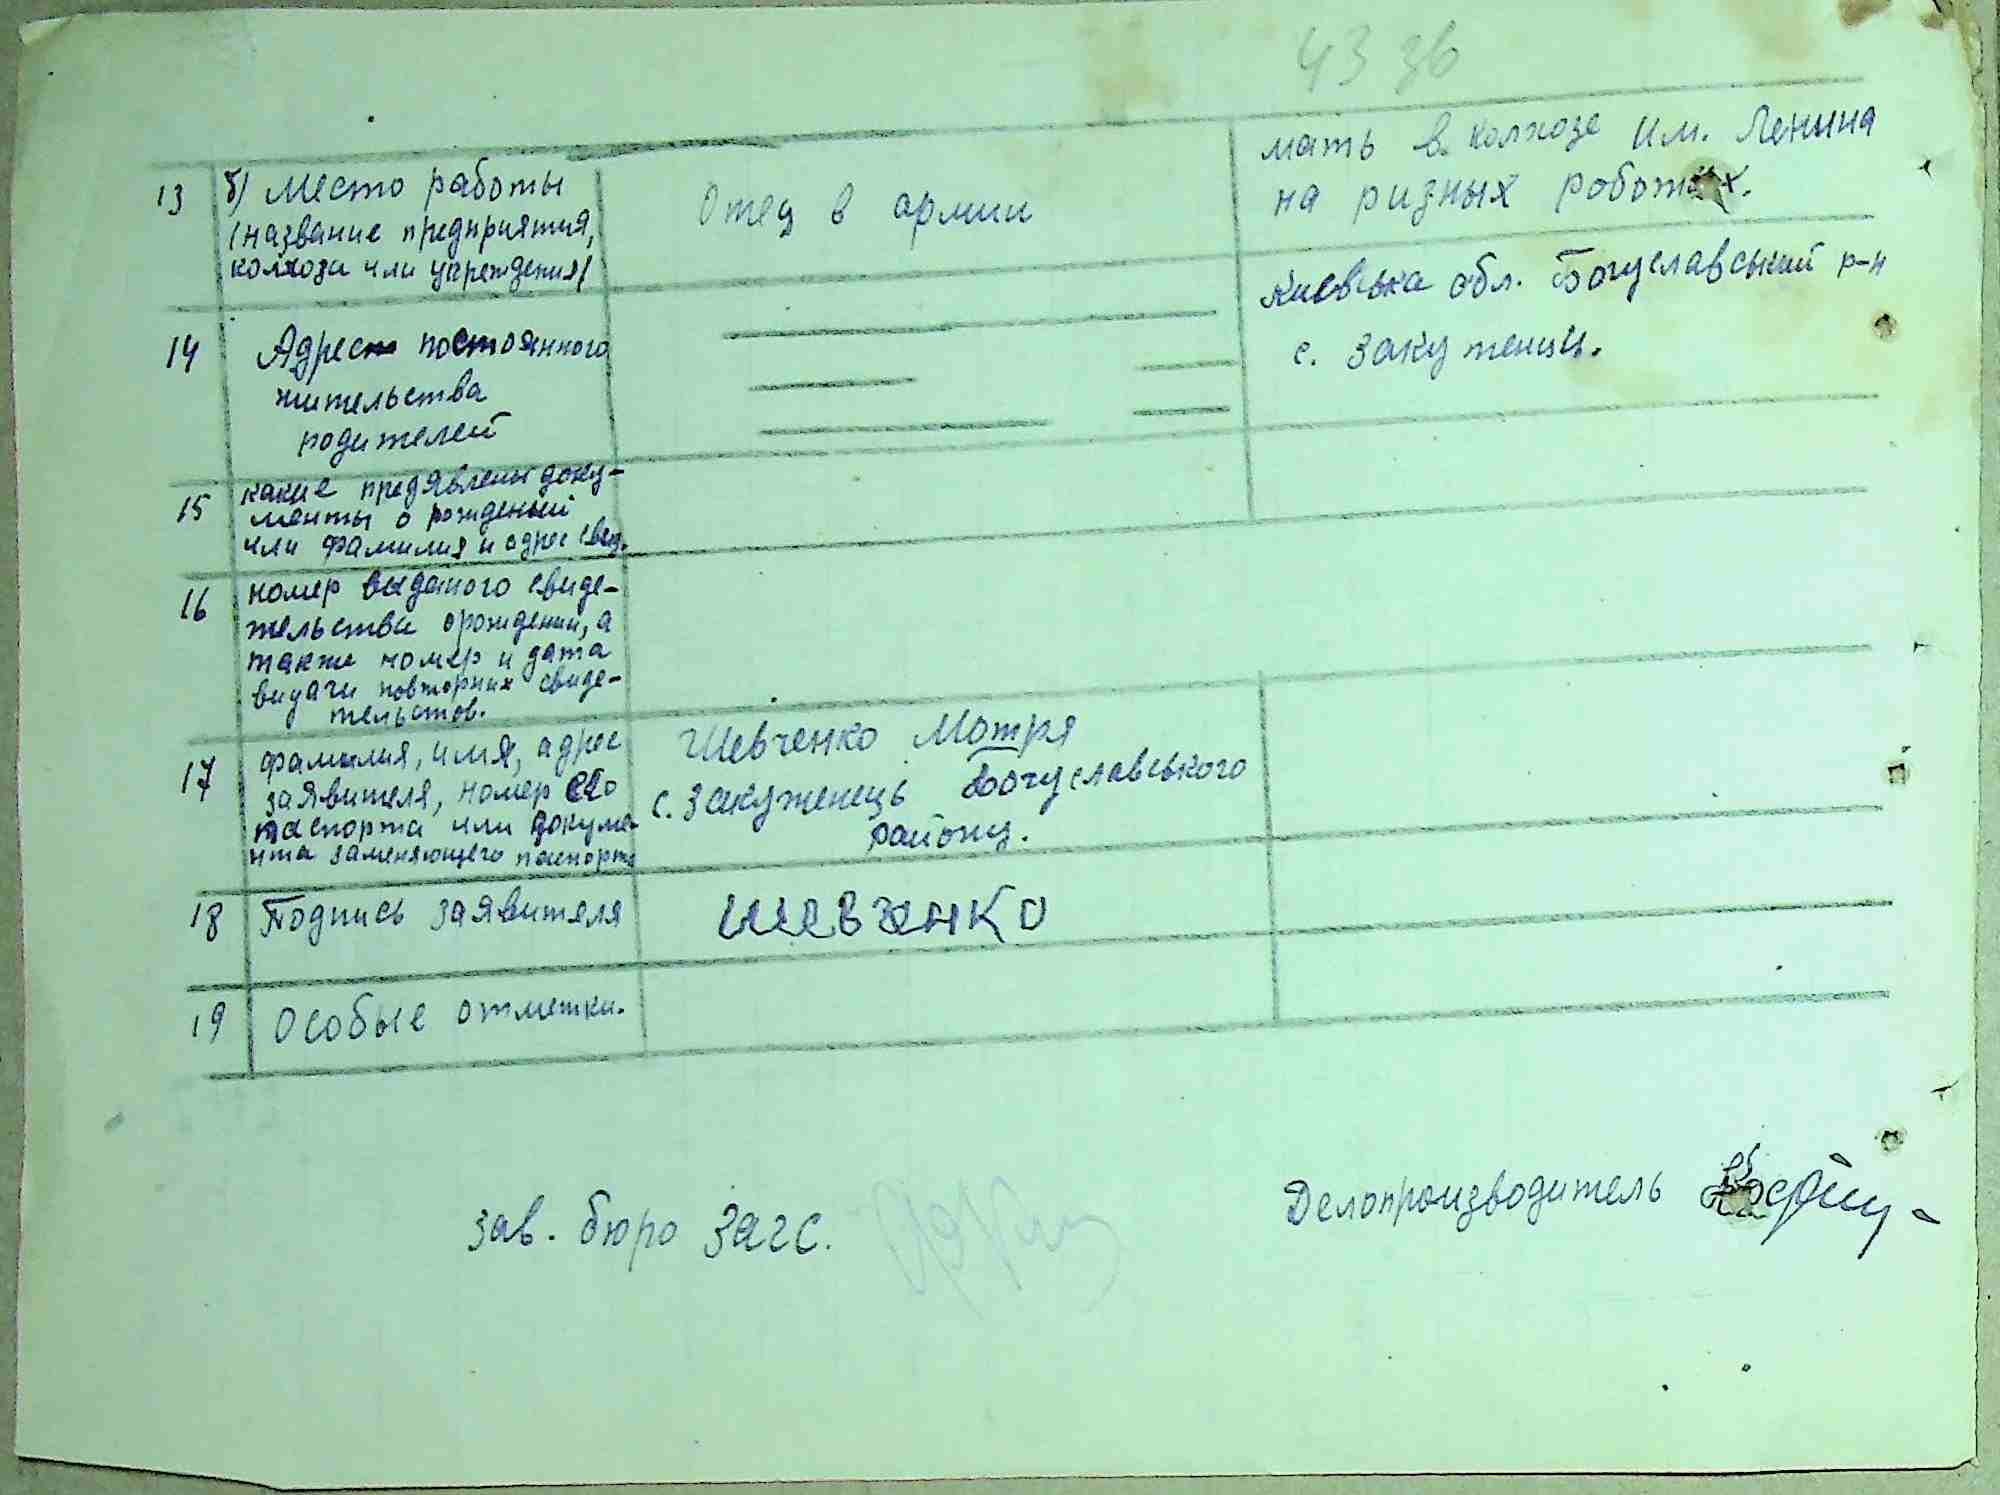 43 зв
13 б) Место работы
(название предприятия,
колхоза или учреждения)
Отец в армии
мать в колхозе им. Ленина
на ризных роботах.
14 Адрес постоянного
жительства
родителей
Киевська обл. Богуславський р-н
с. Закутенци.
15 какие предявлены доку-
менты о рождений
или фамилия и адрес свид.
16 номер выданого свиде-
тельства орождении, а
также номер и дата
видачи повторних свиде-
тельстов.
17 фамилия, имя, адрес
заявителя, номер его
паспорта или докуме-
нта заменяющего паспорта
Шевченко Мотря
с. Закутенець Богуславського
району.
18 Подпись заявителя
Шевченко
19 Особые отметки.
зав. бюро Загс.
Делопроизводитель